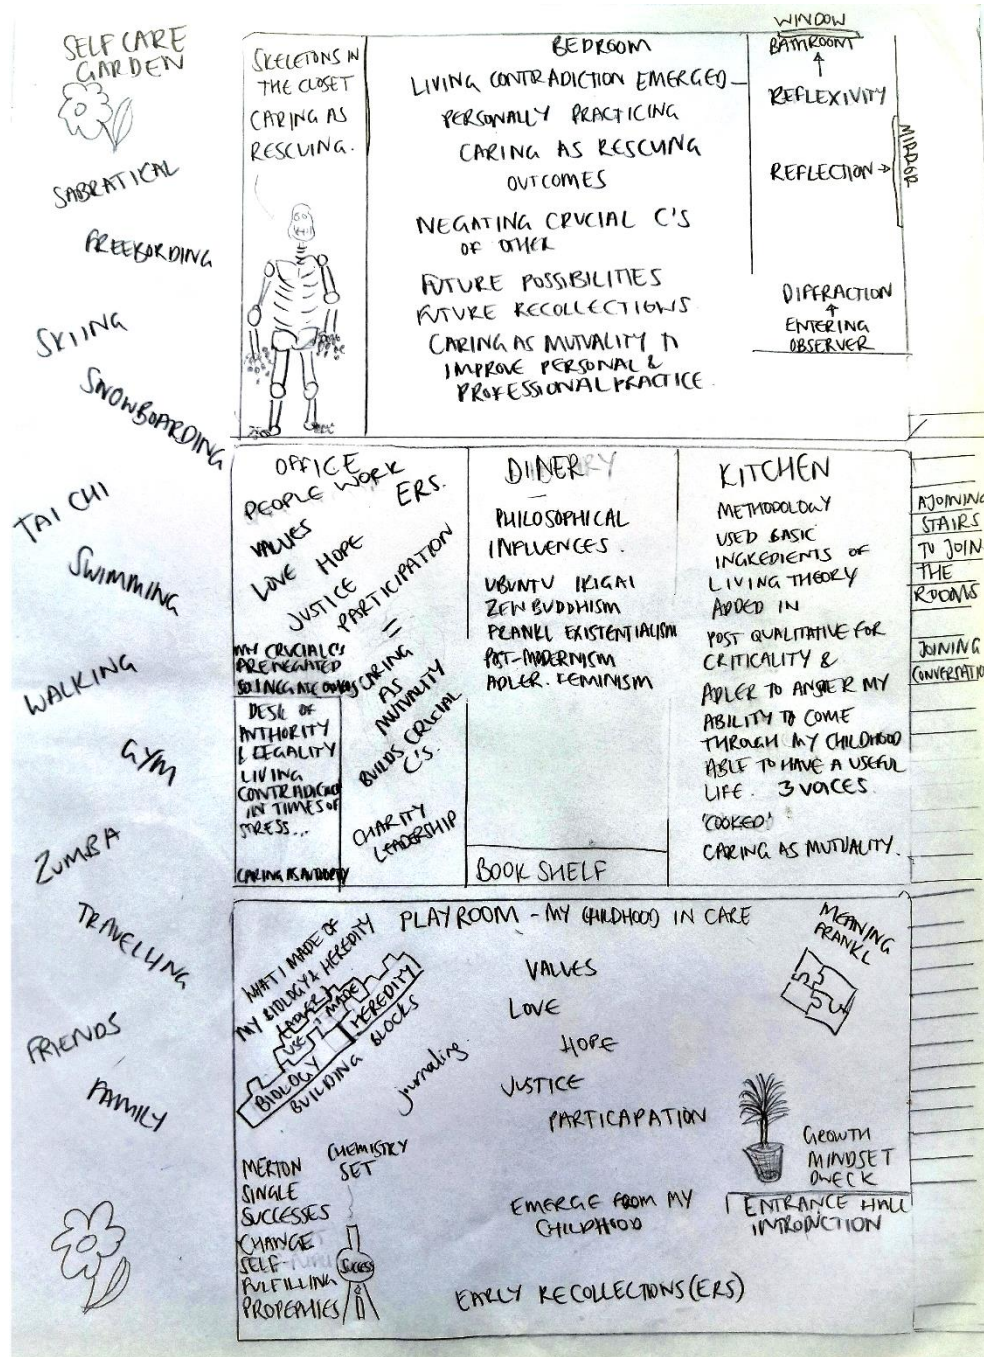 SELF CARE
GARDEN
SABRATICAL
FREEBORDING
SKIING
SNOWBOARDING
TAI CHI
SWIMMING
WALKING
GYM
ZUMBA
TRAVELLYNG
FRIENDS
FAMILY
SKELETONS IN
THE CLOSET
CARING AS
RESCUING.
BEDROOM
LIVING CONTRADICTION EMERGED-
PERSONALLY PRACTICING
CARING AS RESCUING
OUTCOMES
NEGATING CRUCIAL C'S
OF OTHER
FUTURE POSSIBILITIES
FUTURE RECOLLECTIONS
CARING AS MUTUALITY TO
IMPROVE PERSONAL &
PROFESSIONAL PRACTICE.
WINDOW
BATHROOM
REFLEXIVITY
REFLECTION
MIRROR
DIFFRACTION
ENTERING
OBSERVER
OFFICE
PEOPLE WORK
ERS.
VALUES
LOVE HOPE
JUSTICE
PARTICIPATION
=
CARING
AS
MUTUALITY
BUILDS CRUCIAL
C'S.
MY CRUCIAL C'S
ARE NEGATED
SO I NEGATE OTHERS
DESK OF
AUTHORITY
& LEGALITY
LIVING
CONTRADICTION
IN TIMES OF
STRESS...
CARING AS AUTHORITY
CHARITY
LEADERSHIP
DINERY
PHILOSOPHICAL
INFLUENCES.
UBUNTU IKIGAI
ZEN BUDDHISM
FRANKL EXISTENTIALISM
POST-MODERNISM
ADLER. FEMINISM
BOOK SHELF
KITCHEN
METHODOLOGY
USED BASIC
INGREDIENTS OF
LIVING THEORY
ADDED IN
POST QUALITATIVE FOR
CRITICALITY &
ADLER TO ANSER MY
ABILITY TO COME
THROUGH MY CHILDHOOD
ABLE TO HAVE A USEFUL
LIFE. 3 VOICES.
'COOKED'
CARING AS MUTUALITY.
AJOINING
STAIRS
TO JOIN
THE
ROOMS
JOINING
CONVERSATIO
PLAYROOM - MY CHILDHOOD IN CARE
WHAT I MADE OF
MY BIOLOGY & HEREDITY
ADLER
USE MADE
BIOLOGY HEREDITY
BUILDING BLOCKS
journaling.
VALUES
LOVE
HOPE
JUSTICE
PARTICAPATION
EMERGE FROM MY
CHILDHOOD
EARLY RECOLLECTIONS (ERS)
MEANING
FRANKL
GROWTH
MINDSET
DWECK
ENTRANCE HALL
INTRODUCTION
CHEMISTRY
SET
MERTON
SINGLE
SUCCESSES
CHANGE
SELF-
FULFILLING
PROPEHIES
SUCCESS